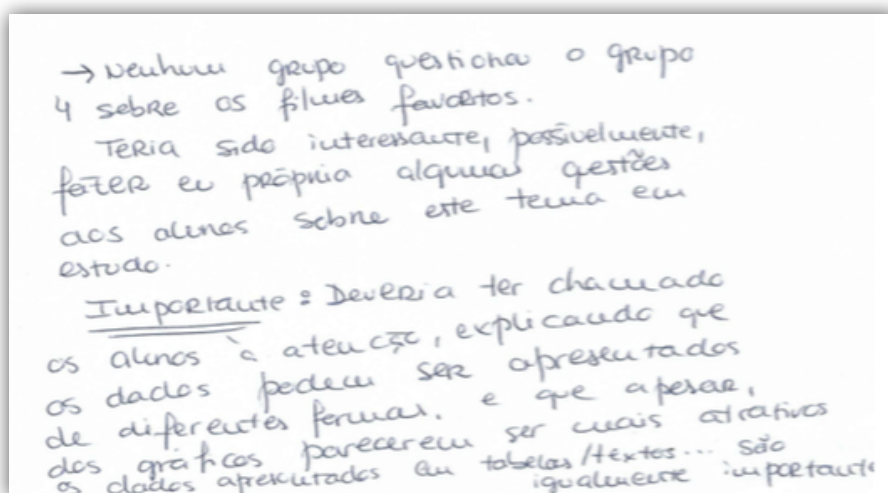 → Nenhum grupo questiona o grupo
4 sobre os filmes favoritos.
Teria sido interessante, possivelmente,
fazer eu própria algumas questões
aos alunos sobre este tema em
estudo.
Importante: Deveria ter chamado
os alunos à atenção, explicando que
os dados podem ser apresentados
de diferentes formas, e que apesar,
dos gráficos parecerem ser mais atrativos
os dados apresentados em tabelas/textos... são
igualmente importante